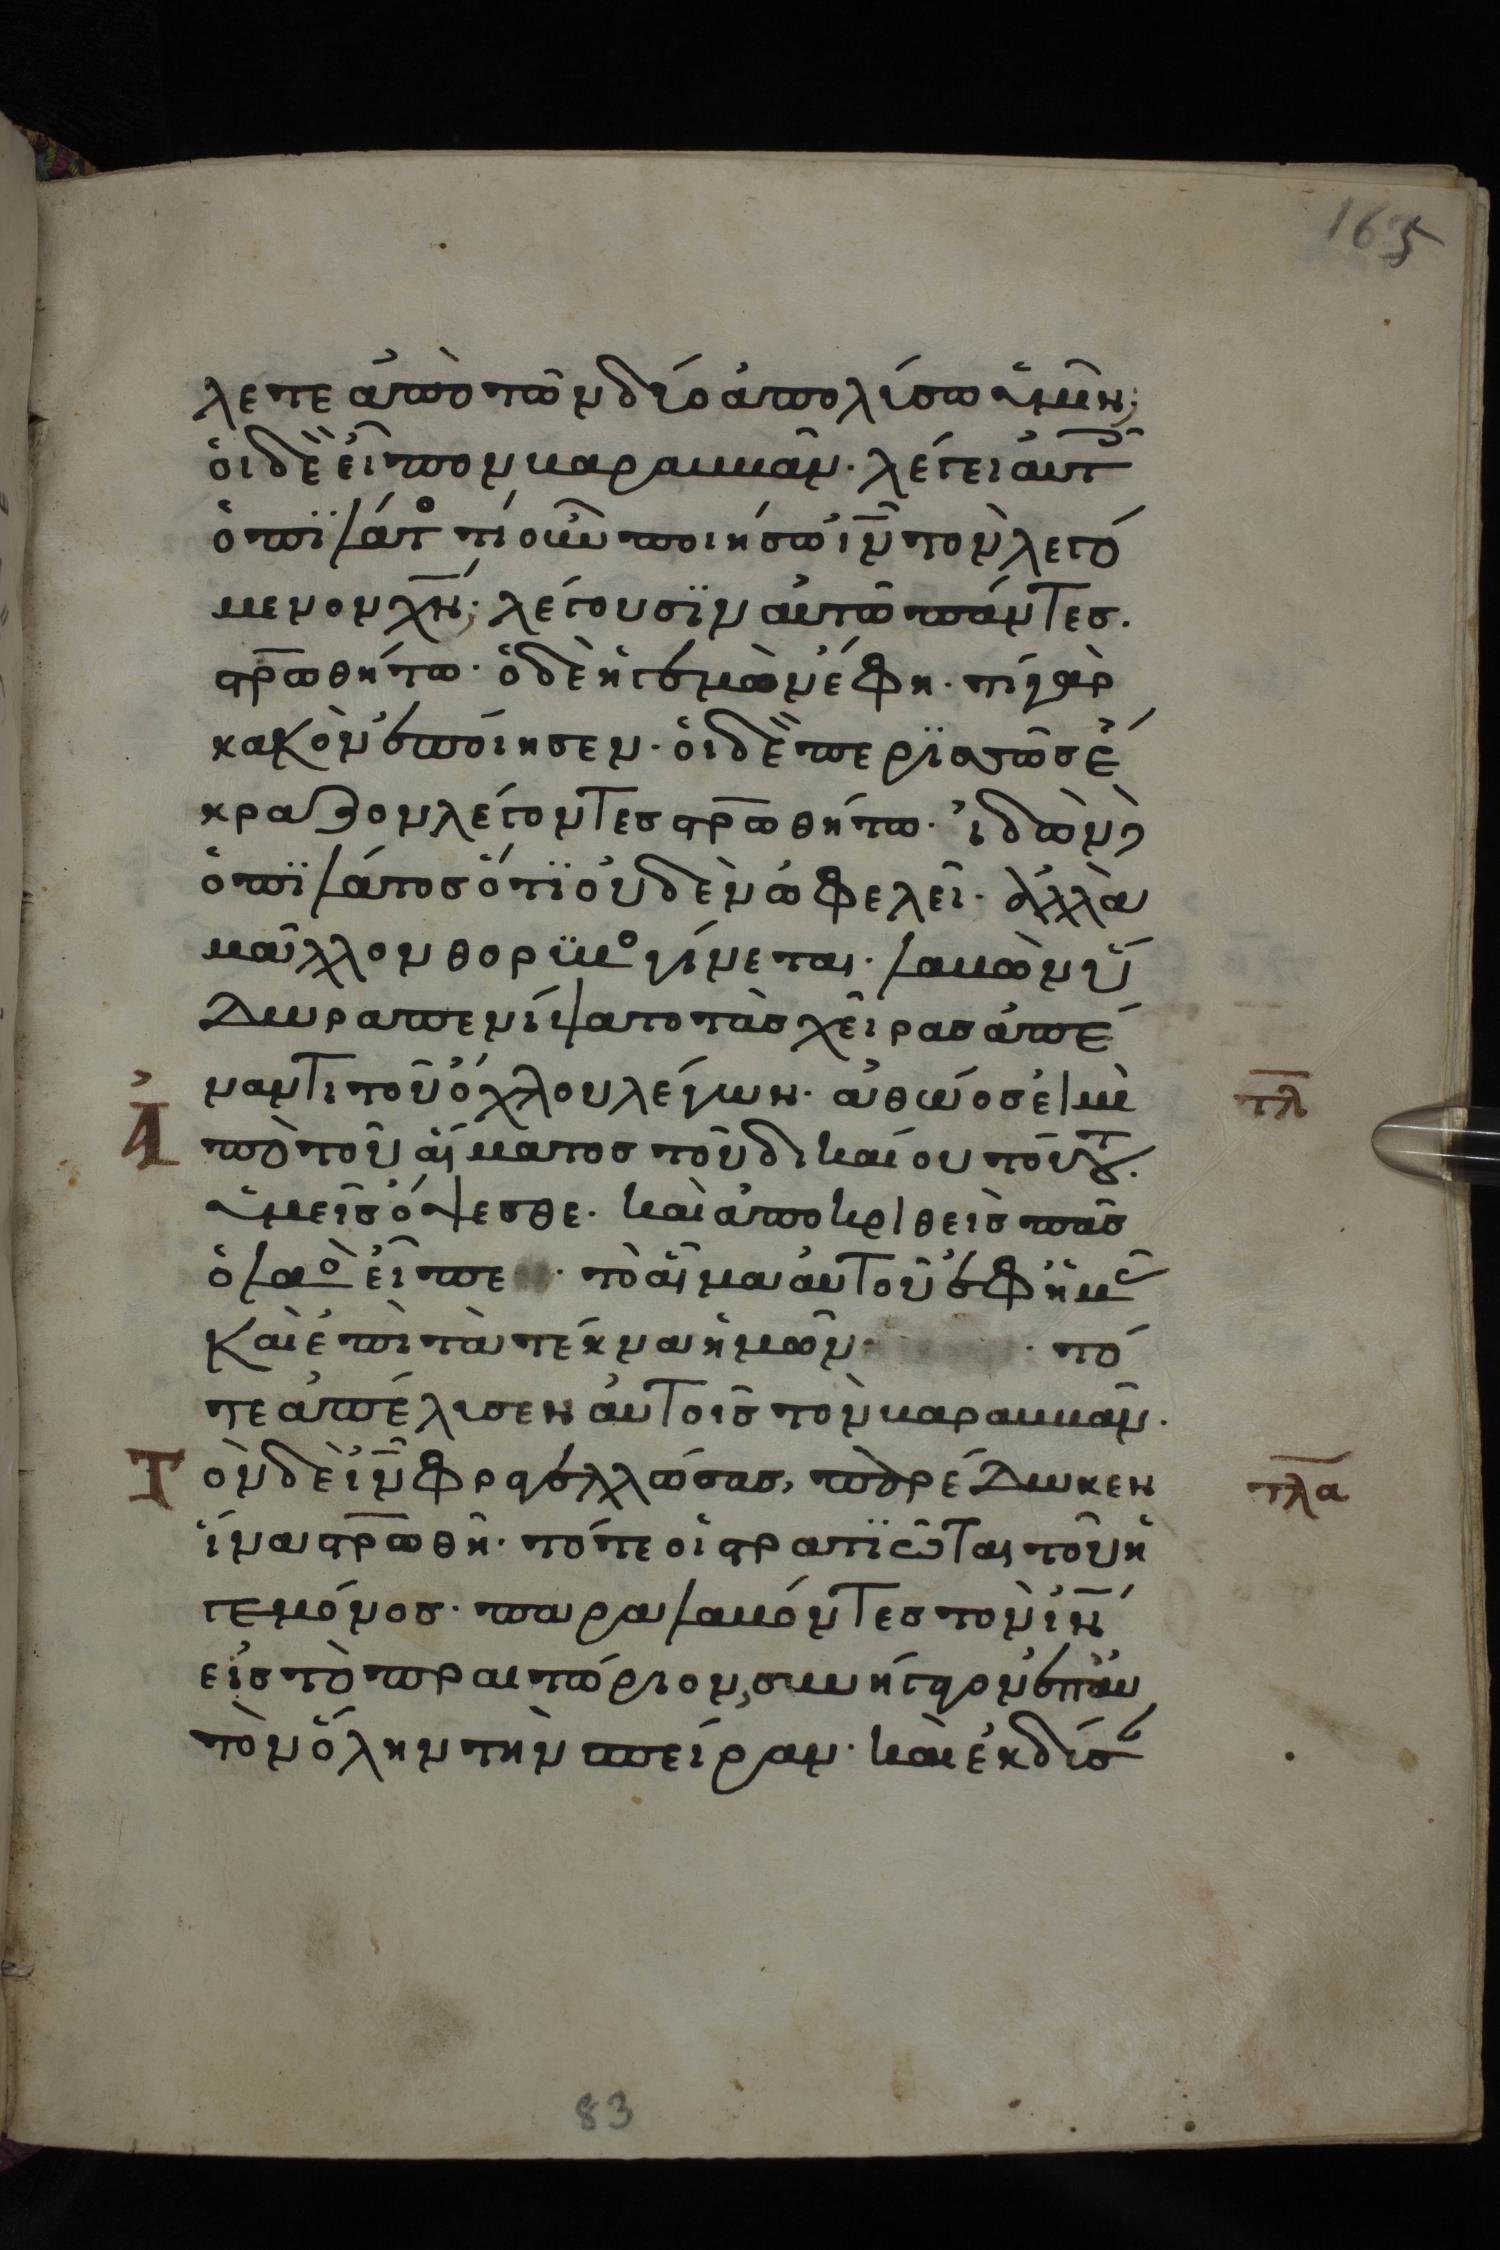 165
λετε ἀπὸ τῶν δύο ἀπολύσω ὑμῖν;
οἱ δὲ εἶπον βαραββᾶν. λέγει αὐτ
ὁ πιλάτ τί οὖν ποιήσω ἰν τὸν λεγό
μενον χν; λέγουσιν αὐτῶ πάντες.
στρωθήτω. ὁ δὲ ἡγεμὼν ἔφη. τί γὰρ
κακὸν ἐποίησεν. οἱ δὲ περισσῶς ἔ
κραζον λέγοντες στρωθήτω. ἰδὼν
ὁ πιλάτος ὅτι οὐδὲν ὠφελεῖ. ἀλλὰ
μᾶλλον θόρυβο γίνεται. λαβὼν ὕ
δωρ ἀπενίψατο τὰς χεῖρας ἀπέ
ναντι τοῦ ὄχλου λέγων. ἀθῶος εἰμὶ
τλ
Ἀ
πὸ τοῦ αἵματος τοῦ δικαίου τούτου.
ὑμεῖς ὄψεσθε. καὶ ἀποκριθεὶς πᾶς
ὁ λαὸ εἶπε. τὸ αἷμα αὐτοῦ ἐφ ἡμᾶς
καὶ ἐπὶ τὰ τέκνα ἡμῶν. τό
τε ἀπέλυσεν αὐτοῖς τὸν βαραββᾶν.
Τ
ὸν δὲ ἰν φραγελλώσας, παρέδωκεν
τλα
ἵνα στρωθῆ. τότε οἱ στρατιῶται τοῦ ἡ
γεμόνος. παραλαβόντες τὸν ἰν
εἰς τὸ πραιτώριον, συνήγαγον ἐπ αὐ
τὸν ὅλην τὴν σπεῖραν. καὶ ἐκδύσ
83